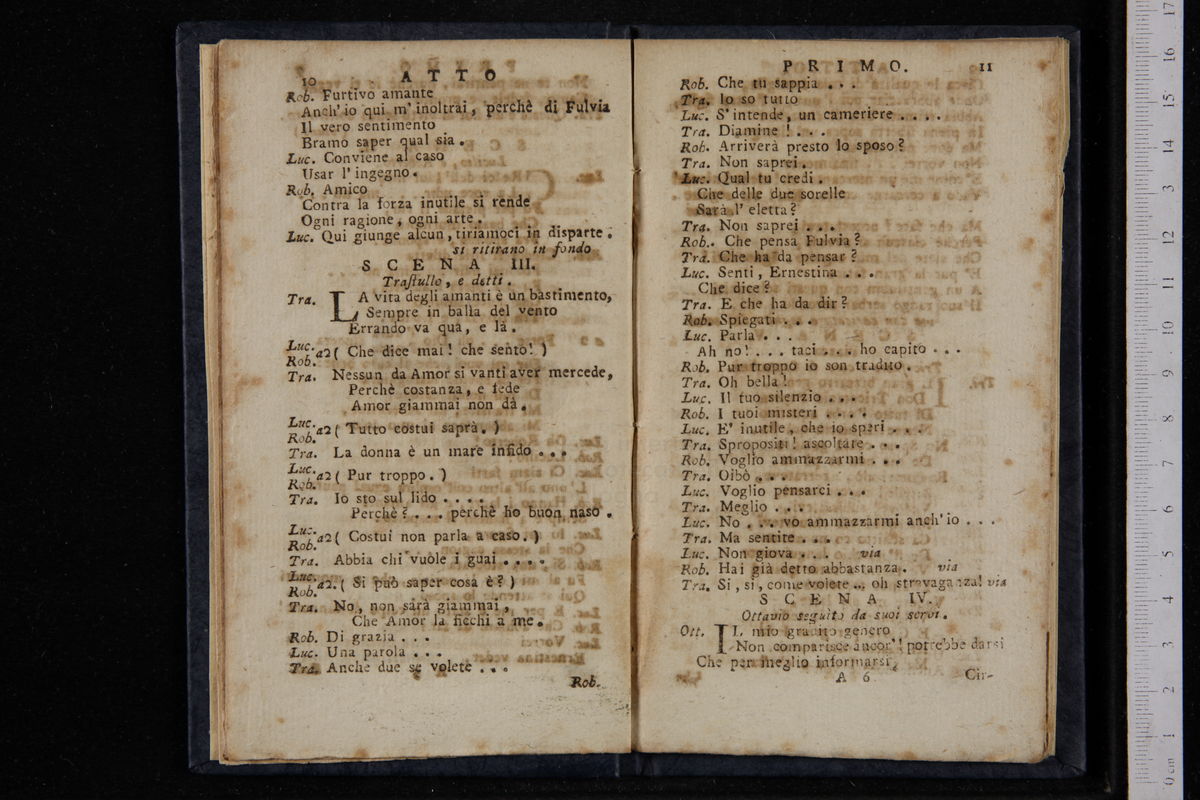 10 ATTO
Rob. Furtivo amante
Anch' io qui m' inoltrai, perchè di Fulvia
Il vero sentimento
Bramo saper qual sia.
Luc. Conviene al caso
Usar l' ingegno.
Rob. Amico
Contra la forza inutile si rende
Ogni ragione, ogni arte.
Luc. Qui giunge alcun, tiriamoci in disparte.
si ritirano in fondo
SCENA III.
Trastullo, e detti.
Tra. LA vita degli amanti è un bastimento,
Sempre in balìa del vento
Errando va quà, e là.
Luc. Rob. a2 ( Che dice mai! che sento! )
Tra. Nessun da Amor si vanti aver mercede,
Perchè costanza, e fede
Amor giammai non dà.
Luc. Rob. a2 ( Tutto costui saprà. )
Tra. La donna è un mare infido ...
Luc. Rob. a2 ( Pur troppo. )
Tra. Io sto sul lido ....
Perchè? ... perchè ho buon naso.
Luc. Rob. a2 ( Costui non parla a caso. )
Tra. Abbia chi vuole i guai ....
Luc. Rob. a2. ( Si può saper cosa è? )
Tra. No, non sarà giammai,
Che Amor la ficchi a me.
Rob. Di grazia ...
Luc. Una parola ...
Tra. Anche due se volete ...
Rob.
PRIMO. 11
Rob. Che tu sappia ...
Tra. Io so tutto
Luc. S' intende, un cameriere ....
Tra. Diamine! ...
Rob. Arriverà presto lo sposo?
Tra. Non saprei.
Luc. Qual tu credi.
Che delle due sorelle
Sarà l' eletta?
Tra. Non saprei ...
Rob.. Che pensa Fulvia?
Tra. Che ha da pensar?
Luc. Senti, Ernestina ...
Che dice?
Tra. E che ha da dir?
Rob. Spiegati ...
Luc. Parla ...
Ah no! ... taci ... ho capito ...
Rob. Pur troppo io son tradito.
Tra. Oh bella!
Luc. Il tuo silenzio ...
Rob. I tuoi misteri ....
Luc. E' inutile, che io speri ...
Tra. Spropositi! ascoltate ...
Rob. Voglio ammazzarmi ...
Tra. Oibò ...
Luc. Voglio pensarci ...
Tra. Meglio ...
Luc. No ... vo ammazzarmi anch' io ...
Tra. Ma sentite ...
Luc. Non giova ... via
Rob. Hai già detto abbastanza. via
Tra. Si, si, come volete ... oh stravaganza! via
SCENA IV.
Ottavio seguito da suoi servi.
Ott. IL mio gradito genero
Non comparisce ancor'! potrebbe darsi
Che per meglio informarsi,
A 6 Cir-